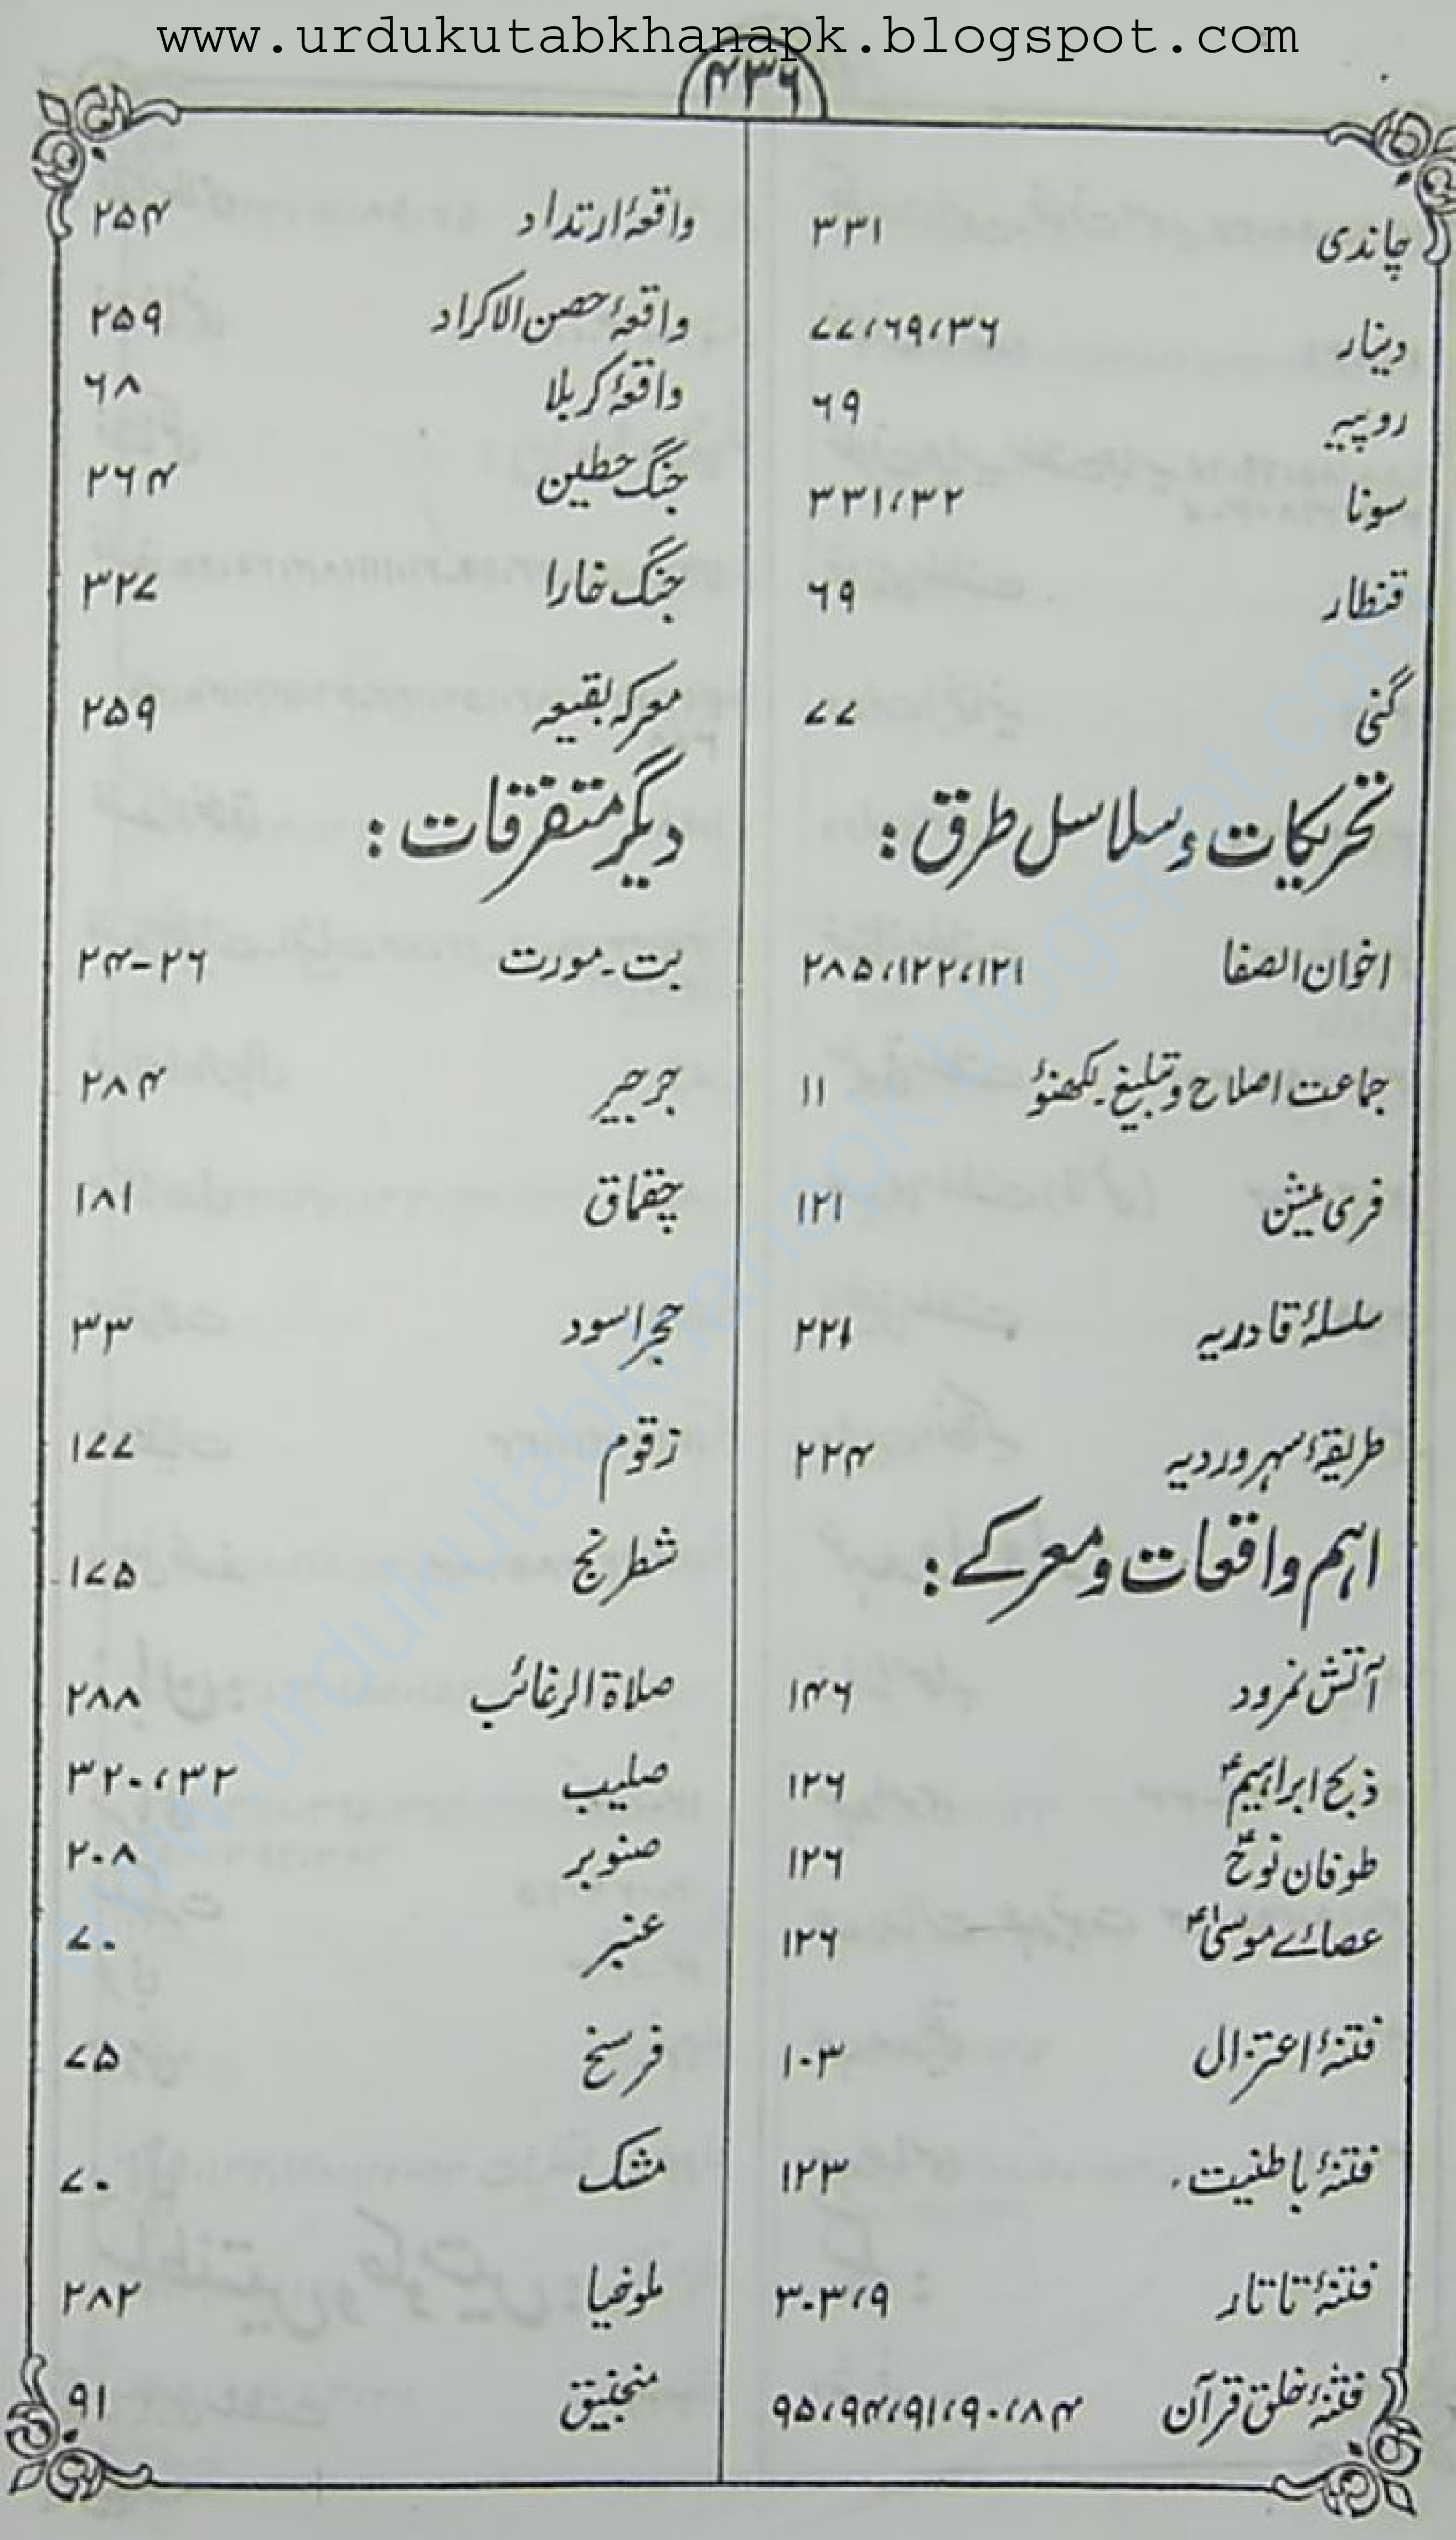 www.urdukutabkhanapk.blogspot.com
۴۳۶
چاندی ۳۳۱
دینار ۳۶، ۶۹، ۷۷
روپیہ ۶۹
سونا ۳۲، ۳۳۱
قنطار ۶۹
گنی ۷۷
تحریکات و سلاسل طرق :
اخوان الصفا ۱۲۱، ۱۲۲، ۲۸۵
جماعت اصلاح و تبلیغ۔ لکھنؤ ۱۱
فری میشن ۱۲۱
سلسلۂ قادریہ ۲۲۱
طریقۂ سہروردیہ ۲۲۴
اہم واقعات و معرکے :
آتش نمرود ۱۴۶
ذبح ابراہیمؑ ۱۲۶
طوفان نوحؑ ۱۲۶
عصائے موسیٰؑ ۱۲۶
فتنۂ اعتزال ۱۰۳
فتنۂ باطنیت ۱۲۳
فتنۂ تاتار ۹، ۳۰۳
فتنۂ خلق قرآن ۸۴، ۹۰، ۹۱، ۹۴، ۹۵
واقعۂ ارتداد ۲۵۴
واقعۂ حصن الاکراد ۲۵۹
واقعۂ کربلا ۶۸
جنگ حطین ۲۶۴
جنگ خارا ۳۲۷
معرکہ بقیعہ ۲۵۹
دیگر متفرقات :
بت۔ مورت ۲۴-۲۶
جرجیر ۲۸۴
چقماق ۱۸۱
حجر اسود ۳۳
زقوم ۱۷۷
شطرنج ۱۷۵
صلاۃ الرغائب ۲۸۸
صلیب ۳۲، ۳۲۰
صنوبر ۲۰۸
عنبر ۷۰
فرسخ ۷۵
مشک ۷۰
ملوخیا ۲۸۲
منجنیق ۹۱
www.urdukutabkhanapk.blogspot.com